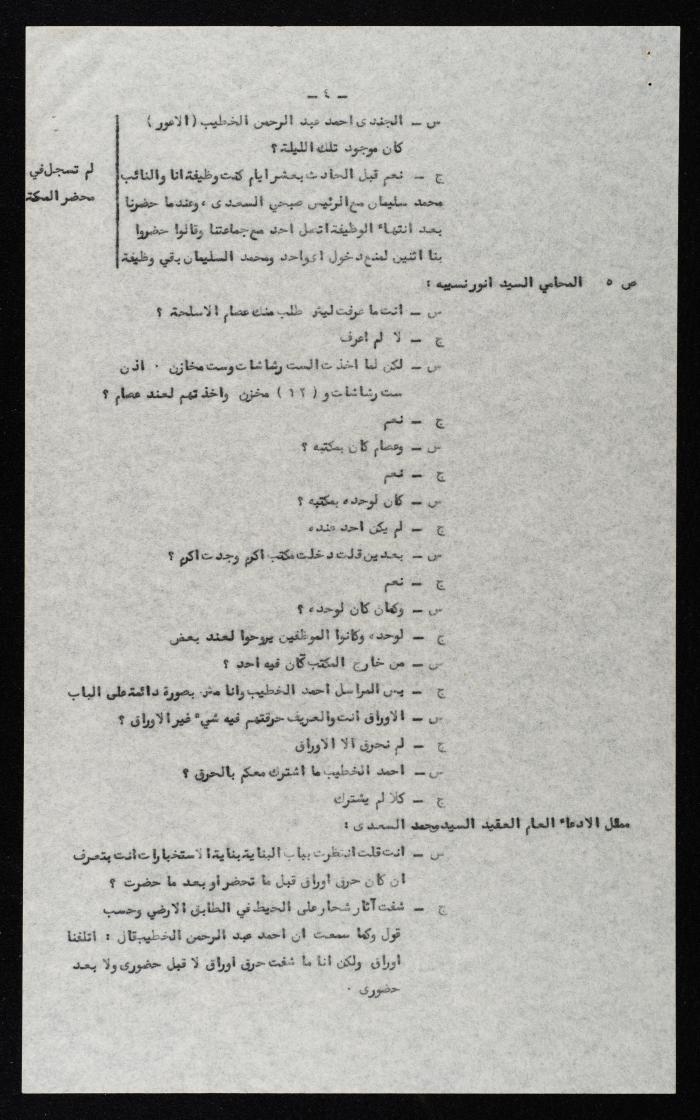 ـ ٤ ـ
س ـ الجندى احمد عبد الرحمن الخطيب (الاعور)
كان موجود تلك الليلة؟
ج ـ نعم قبل الحادث بعشر ايام كنت وظيفة انا والنائب
محمد سليمان مع الرئيس صبحي السعدى ، وعندما حضرنا
بعد انتهاء الوظيفة اتصل احد مع جماعتنا وقالوا حضروا
بنا اثنين لمنع دخول اى واحد ومحمد السليمان بقي وظيفة
لم تسجل في
محضر المكتـ
ص ٥ المحامي السيد انور نسيبه :
س ـ انت ما عرفت ليش طلب منك عصام الاسلحة ؟
ج ـ لا لم اعرف
س ـ لكن لما اخذت الست رشاشات وست مخازن ٠ اذن
ست رشاشات و (١٢) مخزن واخذتهم لعند عصام ؟
ج ـ نعم
س ـ وعصام كان بمكتبه ؟
ج ـ نعم
س ـ كان لوحده بمكتبه ؟
ج ـ لم يكن احد عنده
س ـ بعدين قلت دخلت مكتب اكرم وجدت اكرم ؟
ج ـ نعم
س ـ وكمان كان لوحده ؟
ج ـ لوحده وكانوا الموظفين يروحوا لعند بعض
س ـ من خارج المكتب كان فيه احد ؟
ج ـ بس المراسل احمد الخطيب وانا مش بصورة دائمة على الباب
س ـ الاوراق انت والعريف حرقتهم فيه شيء غير الاوراق ؟
ج ـ لم نحرق الا الاوراق
س ـ احمد الخطيب ما اشترك معكم بالحرق ؟
ج ـ كلا لم يشترك
ممثل الادعاء العام العقيد السيد محمد السعدى :
س ـ انت قلت انتظرت بباب البناية بناية الاستخبارات انت بتعرف
ان كان حرق اوراق قبل ما تحضر او بعد ما حضرت ؟
ج ـ شفت آثار شحار على الحيط في الطابق الارضي وحسب
قول وكما سمعت ان احمد عبد الرحمن الخطيب قال : اتلفنا
اوراق ولكن انا ما شفت حرق اوراق لا قبل حضورى ولا بعد
حضورى ٠